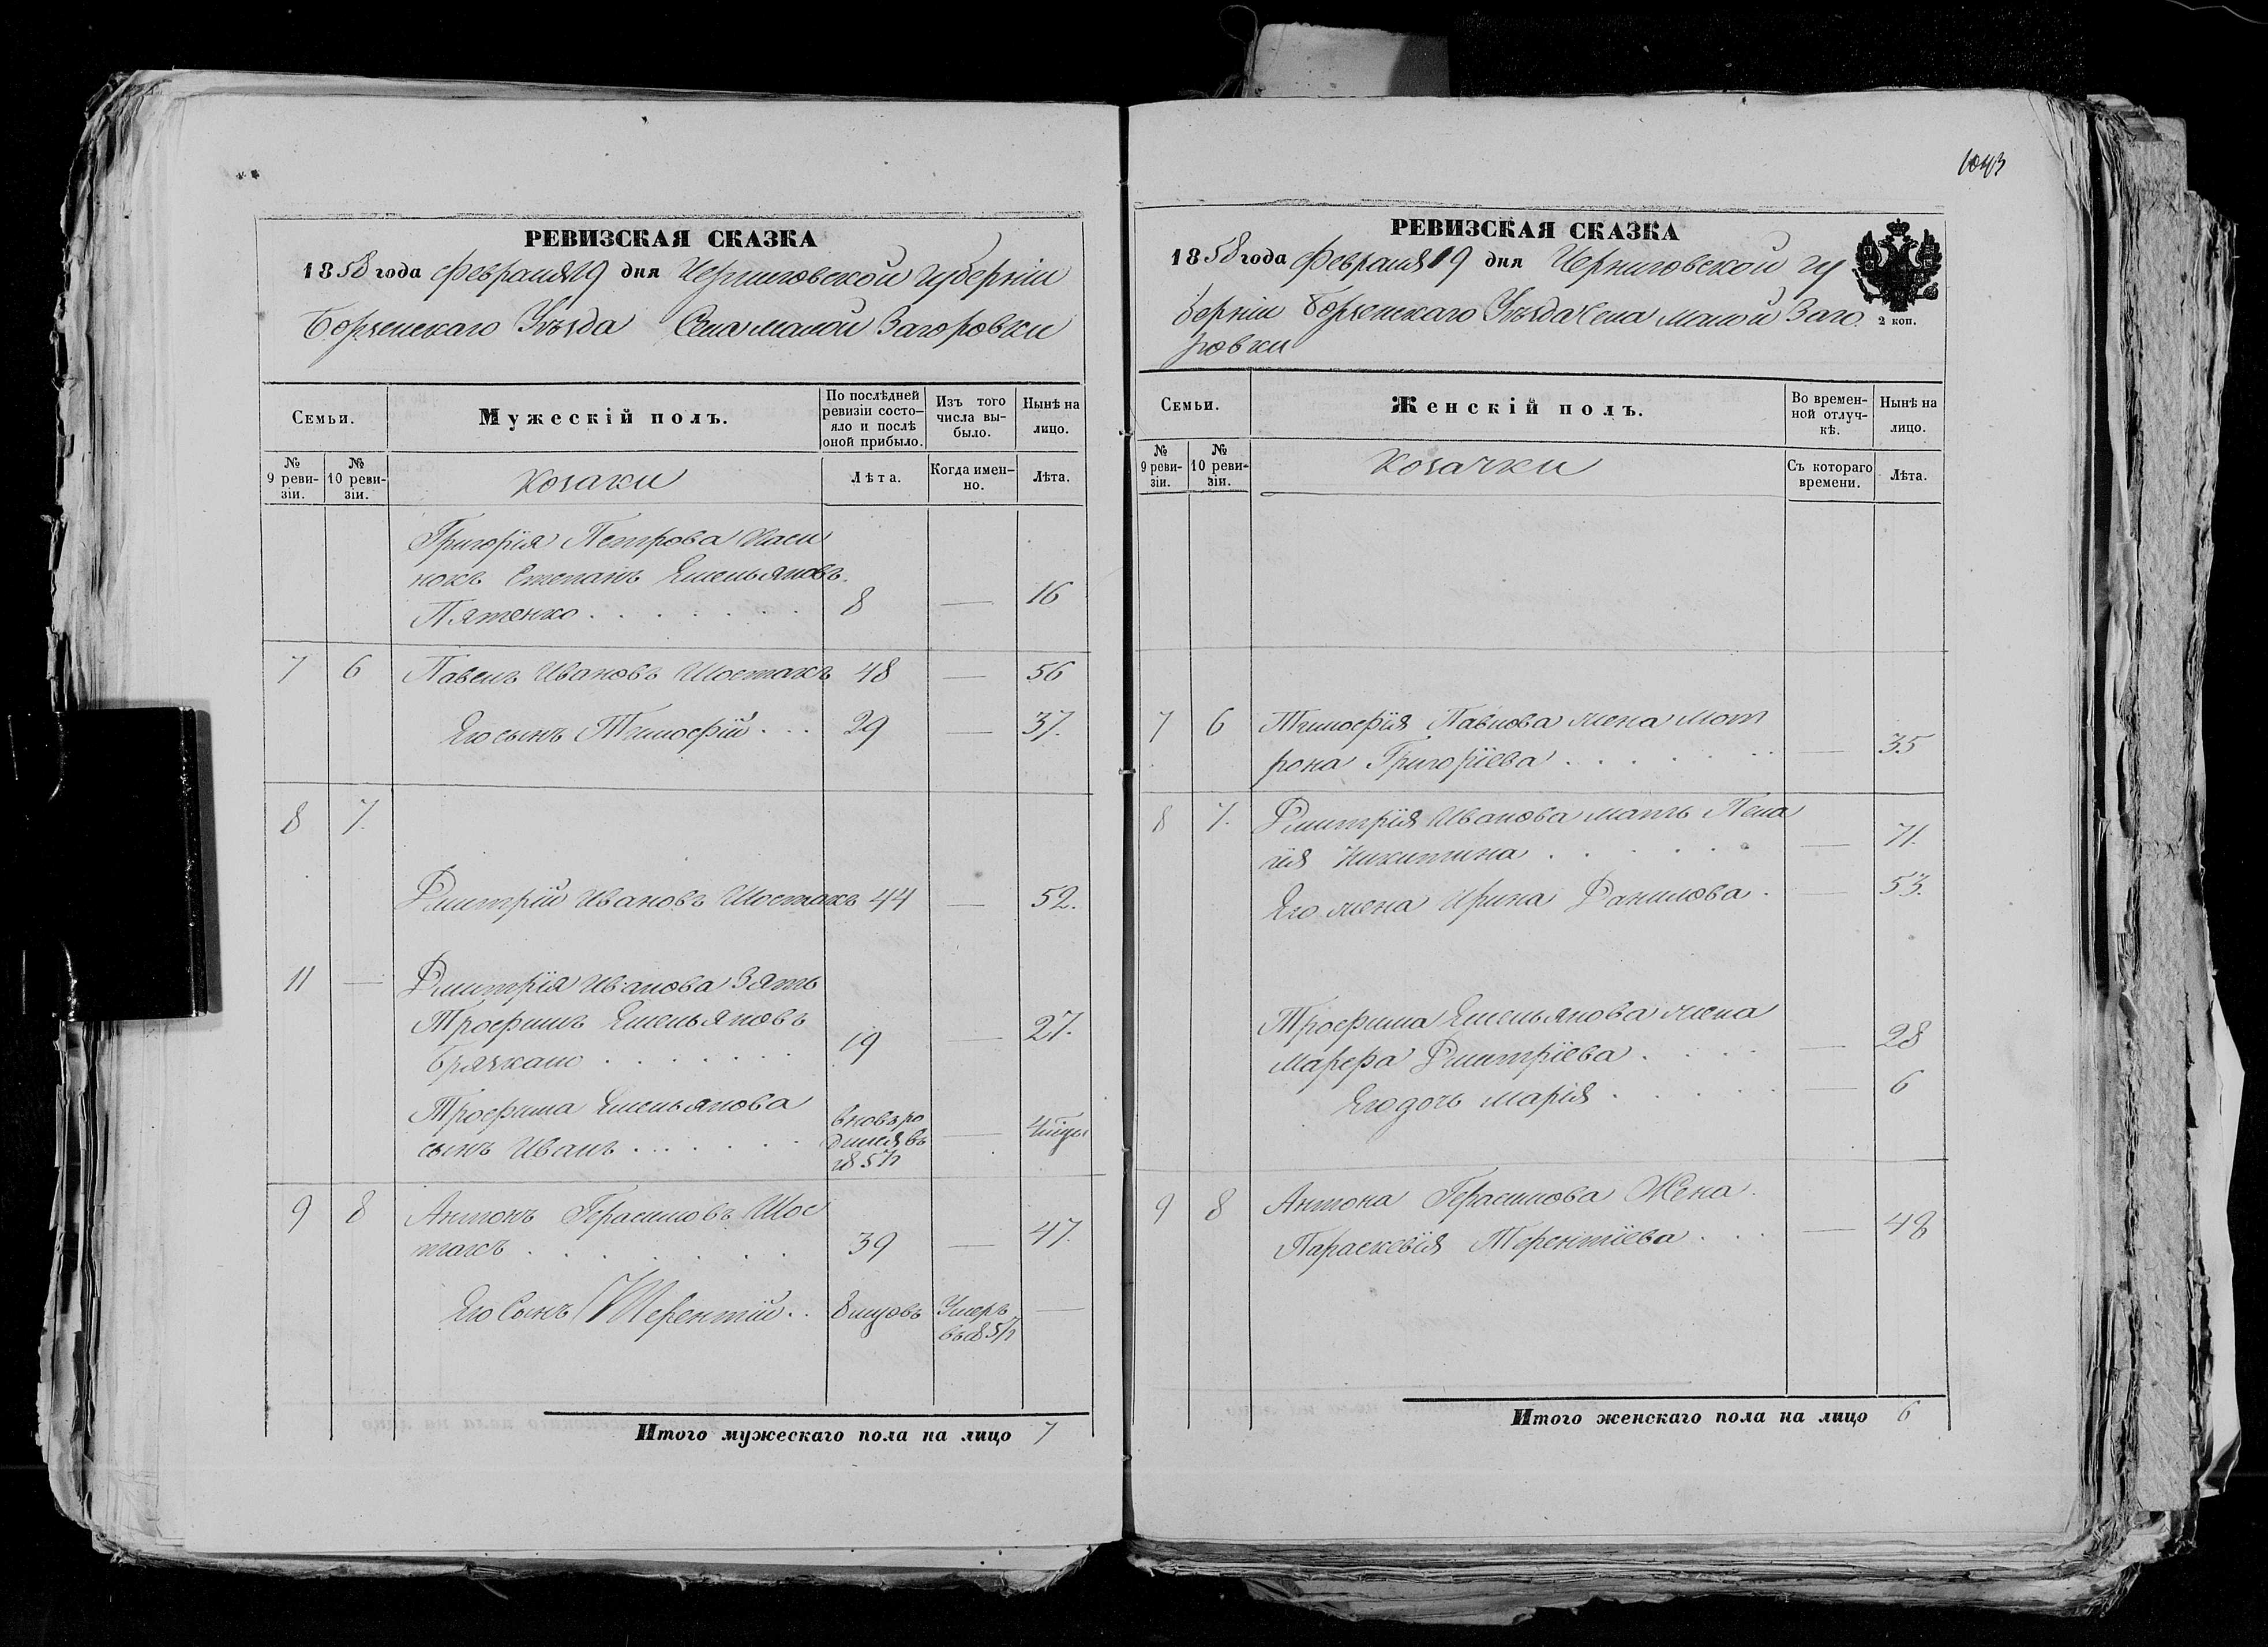 РЕВИЗСКАЯ СКАЗКА
1858 года февраля 19 дня Черниговской губерніи
Борзенскаго Уѣзда Села малой Загоровки
Семьи.
Мужескій полъ.
По послѣдней ревизіи состо-
яло и послѣ оной прибыло.
Изъ того числа вы-
было.
Нынѣ на лицо.
№ 9 реви-
зіи.
№ 10 реви-
зіи.
Козаки
Лѣта.
Когда имен-
но.
Лѣта.
Григорія Петрова
нокъ Степанъ Емельяновъ
Пятенко . . . . . . 8 — 16
7 6 Павелъ Ивановъ Шостакъ 48 — 56
Его сынъ Тимофій . . . 29 — 37.
8 7.
Дмитрій Ивановъ Шостакъ 44 — 52.
11 — Дмитрія Иванова Зять
Трофимъ Емельяновъ
. . . . . . . 19 — 27.
Трофима Емельянова
сынъ Иванъ . . . . . .
вновь ро
дился въ
1857
—
9 8 Антонъ Герасимовъ Шос
такъ . . . . . . . 39 — 47.
Его Сынъ Терентій . . 8 мцовъ
Умеръ
въ 1857
—
Итого мужескаго пола на лицо 7
1043
РЕВИЗСКАЯ СКАЗКА
1858 года февраля 19 дня Черниговской гу
берніи Борзенскаго Уѣзда Села малой Заго
ровки
2 коп.
Семьи.
Женскій полъ.
Во времен-
ной отлуч-
кѣ.
Нынѣ на лицо.
№ 9 реви-
зіи.
№ 10 реви-
зіи.
Козачки
Съ котораго времени.
Лѣта.
7 6 Тимофія Павлова жена Мот
рона Григоріева . . . . . . — 35
8 7. Дмитрія Иванова мать Пела
гія Никитина . . . . . . — 71.
Его жена Ирина Данилова . — 53.
Трофима Емельянова жена
Марфа Дмитріева . . . . — 28
Его дочь Марія . . . . . — 6
9 8 Антона Герасимова Жена
Параскевія Терентіева . . . — 48
Итого женскаго пола на лицо 6